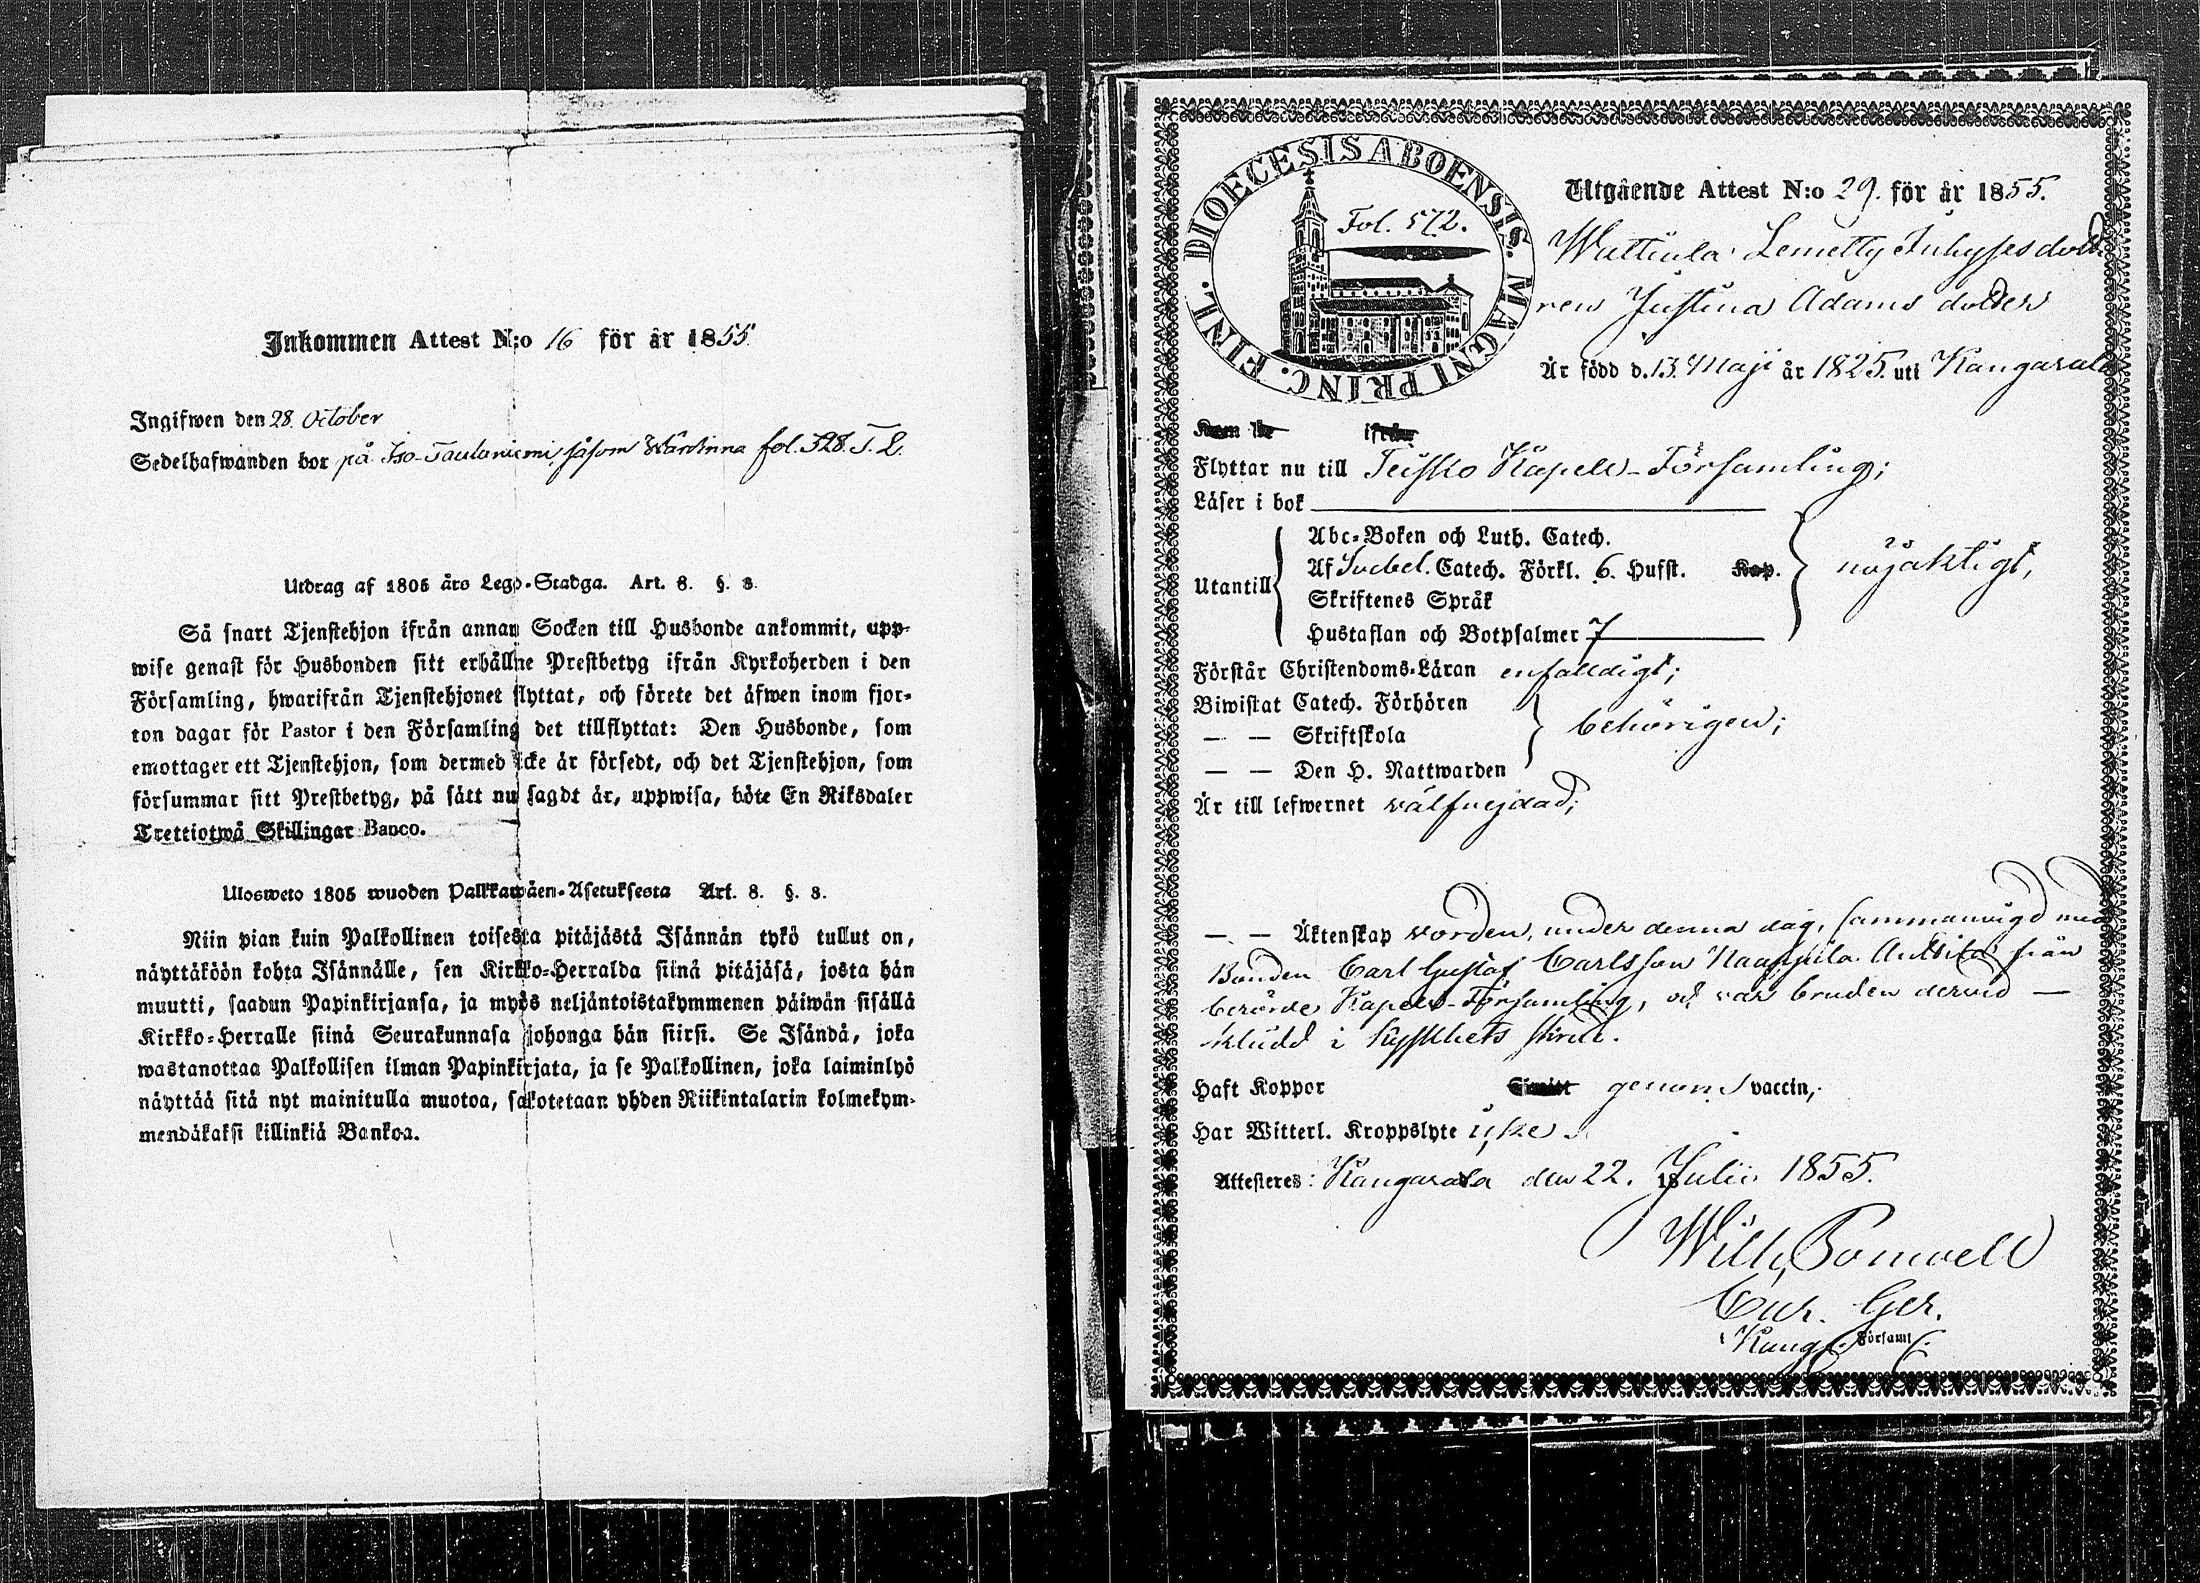 Inkommen Attest N:o 16 för år 1855
Ingifwen den 28. October
Sedelhafwanden bor på Iso-Taulaniemi såsom Wärdinna fol. 328. T. 2.
Utdrag af 1805 års Lego-Stadga. Art. 8. §. 8.
Så snart Tjenstehjon ifrån annan Socken till Husbonde ankommit, upp-
wise genast för Husbonden sitt erhållne Prestbetyg ifrån Kyrkoherden i den
Församling, hwarifrån Tjenstehjonet flyttat, och förete det äfwen inom fjor-
ton dagar för Pastor i den Församling det tillflyttat: Den Husbonde, som
emottager ett Tjenstehjon, som dermed icke är försedt, och det Tjenstehjon, som
försummar sitt Prestbetyg, på sätt nu sagdt är, uppwisa, böte En Riksdaler
Trettiotwå Skillingar Banco.
Ulosweto 1805 wuoden Palkkawäen-Asetuksesta Art. 8. §. 8.
Niin pian kuin Palkollinen toisesta pitäjästä Isännän tykö tullut on,
näyttäköön kohta Isännälle, sen Kirkko-Herralda siinä pitäjäsä, josta hän
muutti, saadun Papinkirjansa, ja myös neljäntoistakymmenen päiwän sisällä
Kirkko-Herralle siinä Seurakunnasa johonga hän siirsi. Se Isändä, joka
wastanottaa Palkollisen ilman Papinkirjata, ja se Palkollinen, joka laiminlyö
näyttää sitä nyt mainitulla muotoa, sakotetaan yhden Riikintalarin kolmekym-
mendäkaksi killinkiä Bankoa.
DIOECESIS ABOENSIS. MAGNI PRINC. FINL.
Fol. 572.
Utgående Attest N:o 29. för år 1855.
Wattiula Lemetty Inhysesdott
ren Justina Adams dotter
Är född d. 13. Maji år 1825. uti Kangasala
Kom hr ifrån
Flyttar nu till Teisko Kapell-Församling;
Läser i bok
Utantill
Abc-Boken och Luth. Catech.
Af Svebel. Catech. Förkl. 6. Hufst. Kap.
Skriftenes Språk
Hustaflan och Botpsalmer 7
nöjaktigt;
Förstår Christendoms-Läran enfalldigt;
Biwistat Catech. Förhören
— — Skriftskola
— — Den H. Nattwarden
behörigen;
Är till lefwernet välfrejdad;
— — Äktenskap vorden, under denna dag, sammanvigd med
Bonden Carl Gustaf Carlsson Naappila Anttila från
berörde Kapell-Församling, och var bruden dervid —
klädd i kyskhets skrud.
Haft Koppor Ej mist genom vaccin;
Har Witterl. Kroppslyte icke.
Attesteres: Kangasala den 22. 18 Julii 1855.
Wilh. Bonwell
Cur. Ger.
i Kang. Församl.